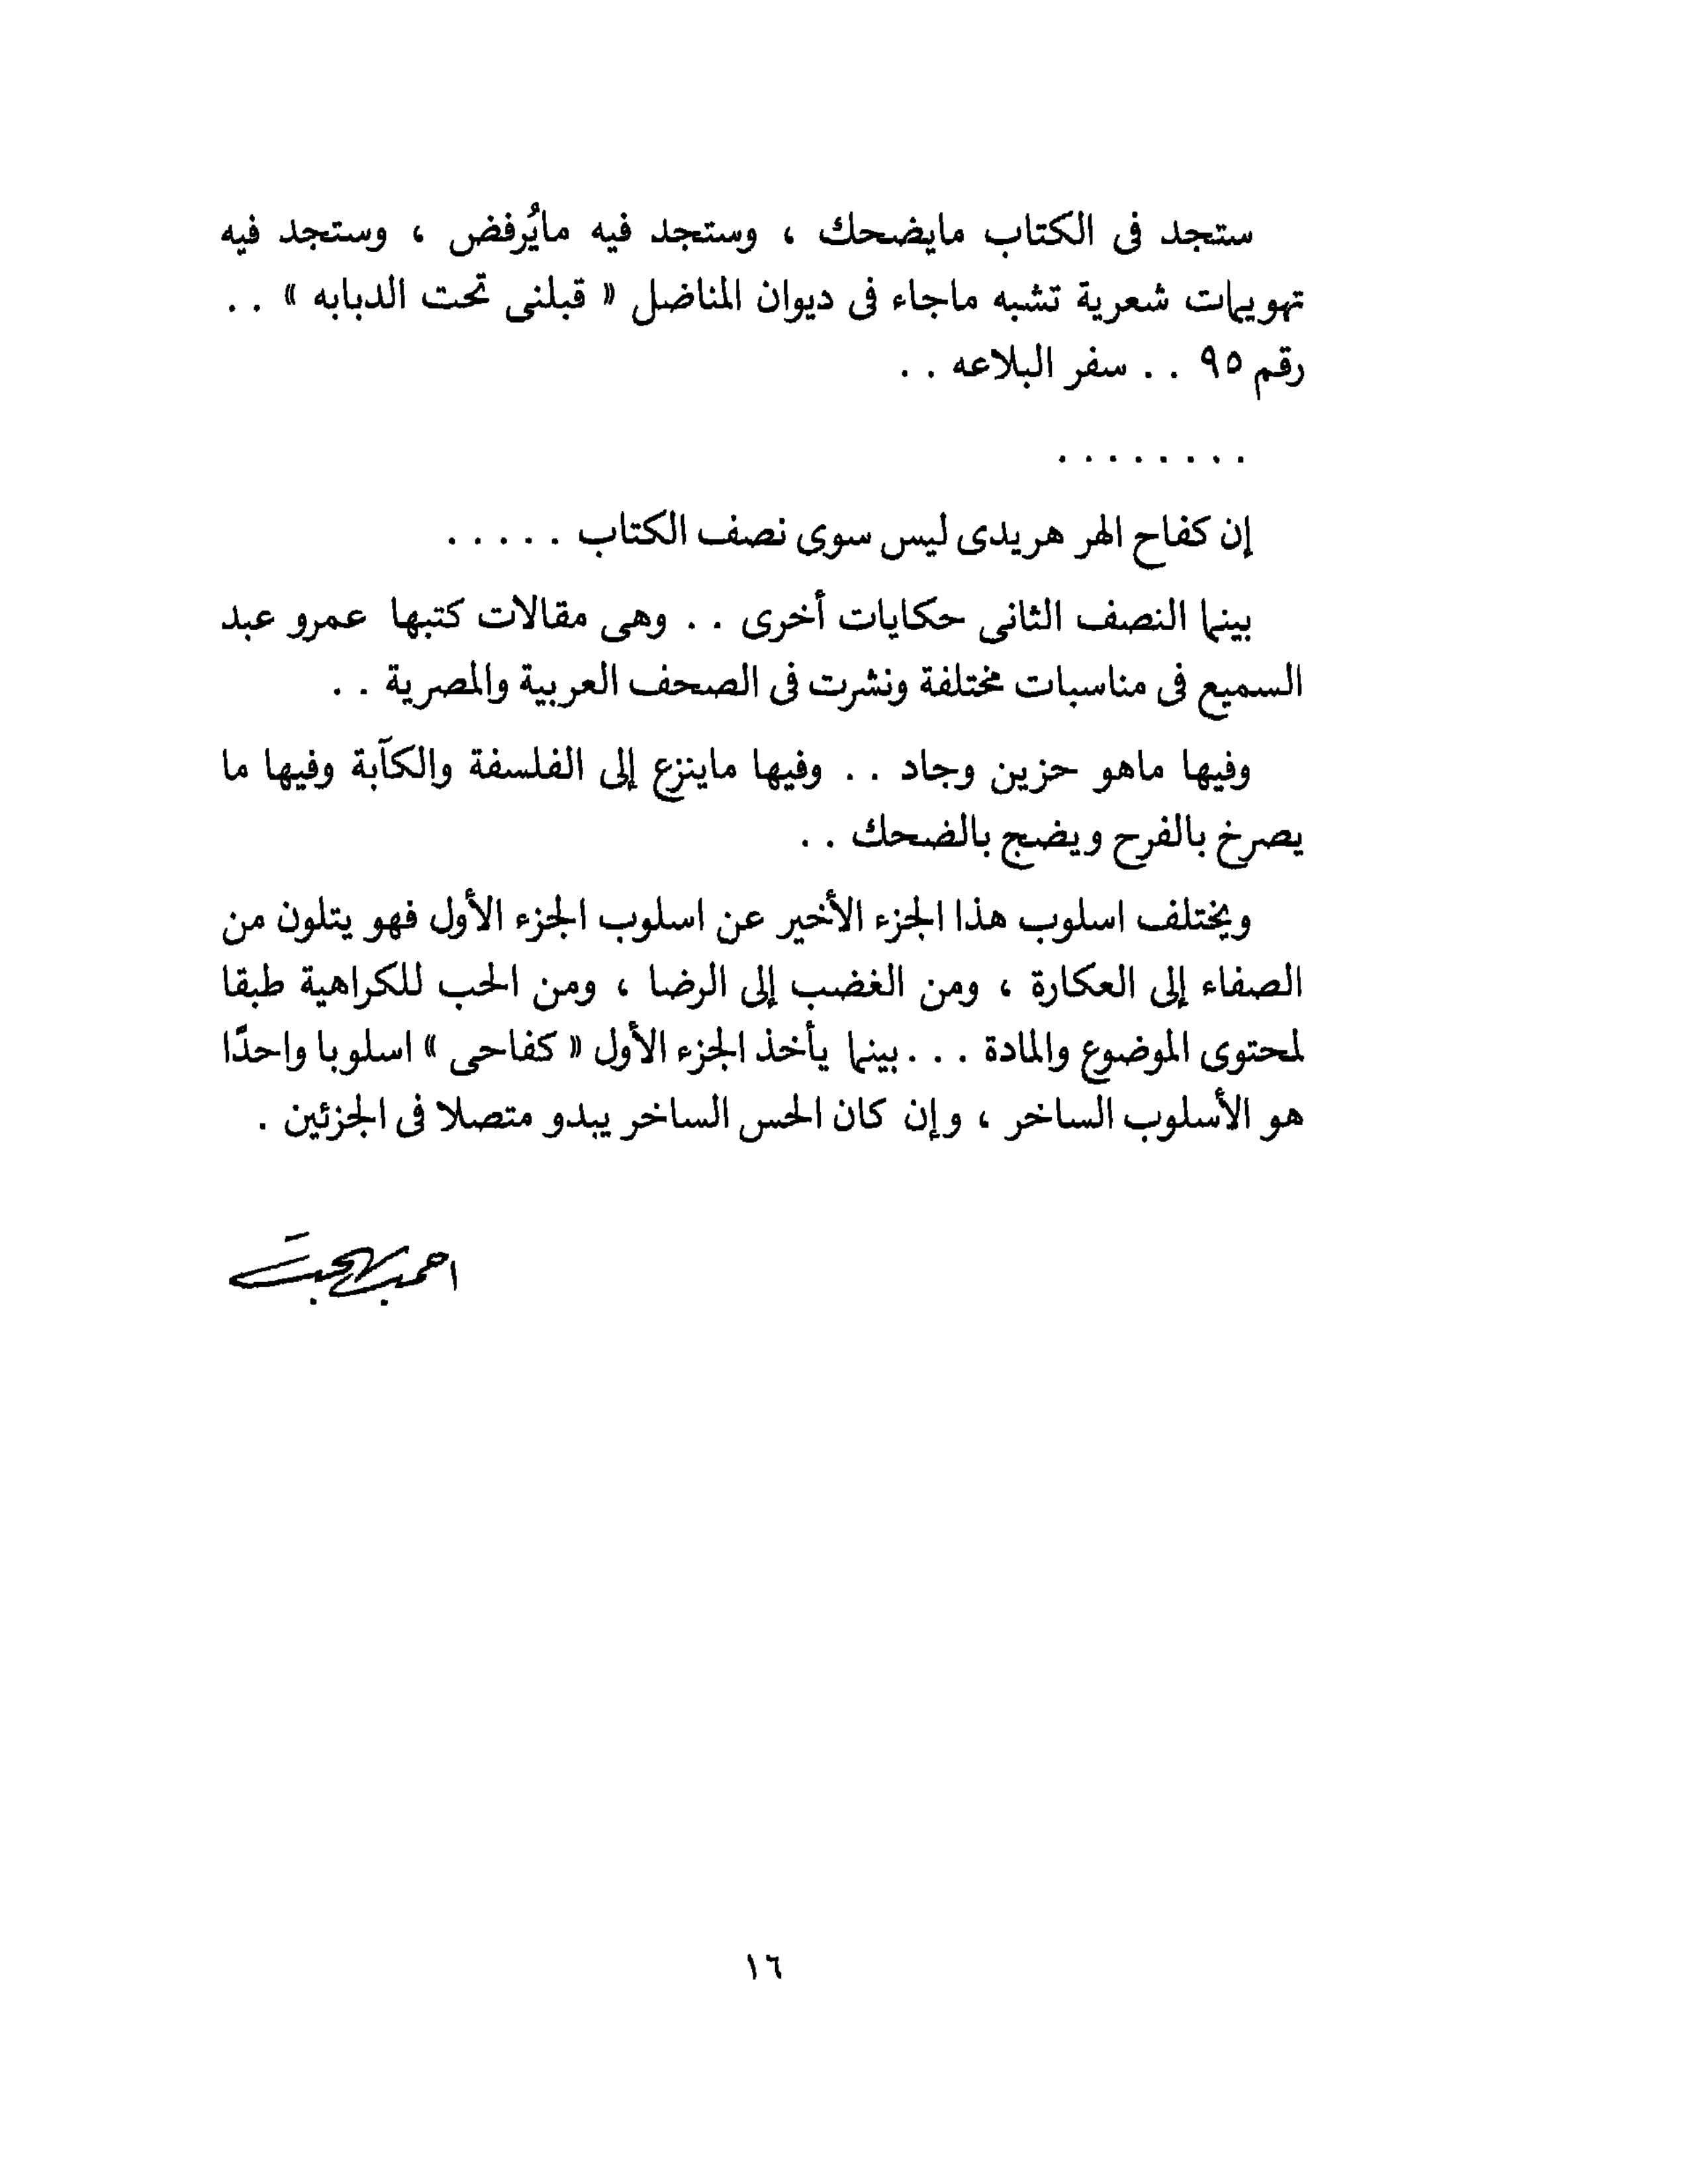 ستجد فى الكتاب مايضحك ، وستجد فيه مايُرفض ، وستجد فيه
تهويمات شعرية تشبه ماجاء فى ديوان المناضل « قبلنى تحت الدبابه » . .
رقم ٩٥ . . سفر البلاعه . .
. . . . . . . .
إن كفاح الهر هريدى ليس سوى نصف الكتاب . . . . .
بينما النصف الثانى حكايات أخرى . . وهى مقالات كتبها عمرو عبد
السميع فى مناسبات مختلفة ونشرت فى الصحف العربية والمصرية . .
وفيها ماهو حزين وجاد . . وفيها ماينزع إلى الفلسفة والكآبة وفيها ما
يصرخ بالفرح ويضج بالضحك . .
ويختلف اسلوب هذا الجزء الأخير عن اسلوب الجزء الأول فهو يتلون من
الصفاء إلى العكارة ، ومن الغضب إلى الرضا ، ومن الحب للكراهية طبقا
لمحتوى الموضوع والمادة . . . بينما يأخذ الجزء الأول « كفاحى » اسلوبا واحدًا
هو الأسلوب الساخر ، وإن كان الحس الساخر يبدو متصلا فى الجزئين .
احمد بهجت
١٦